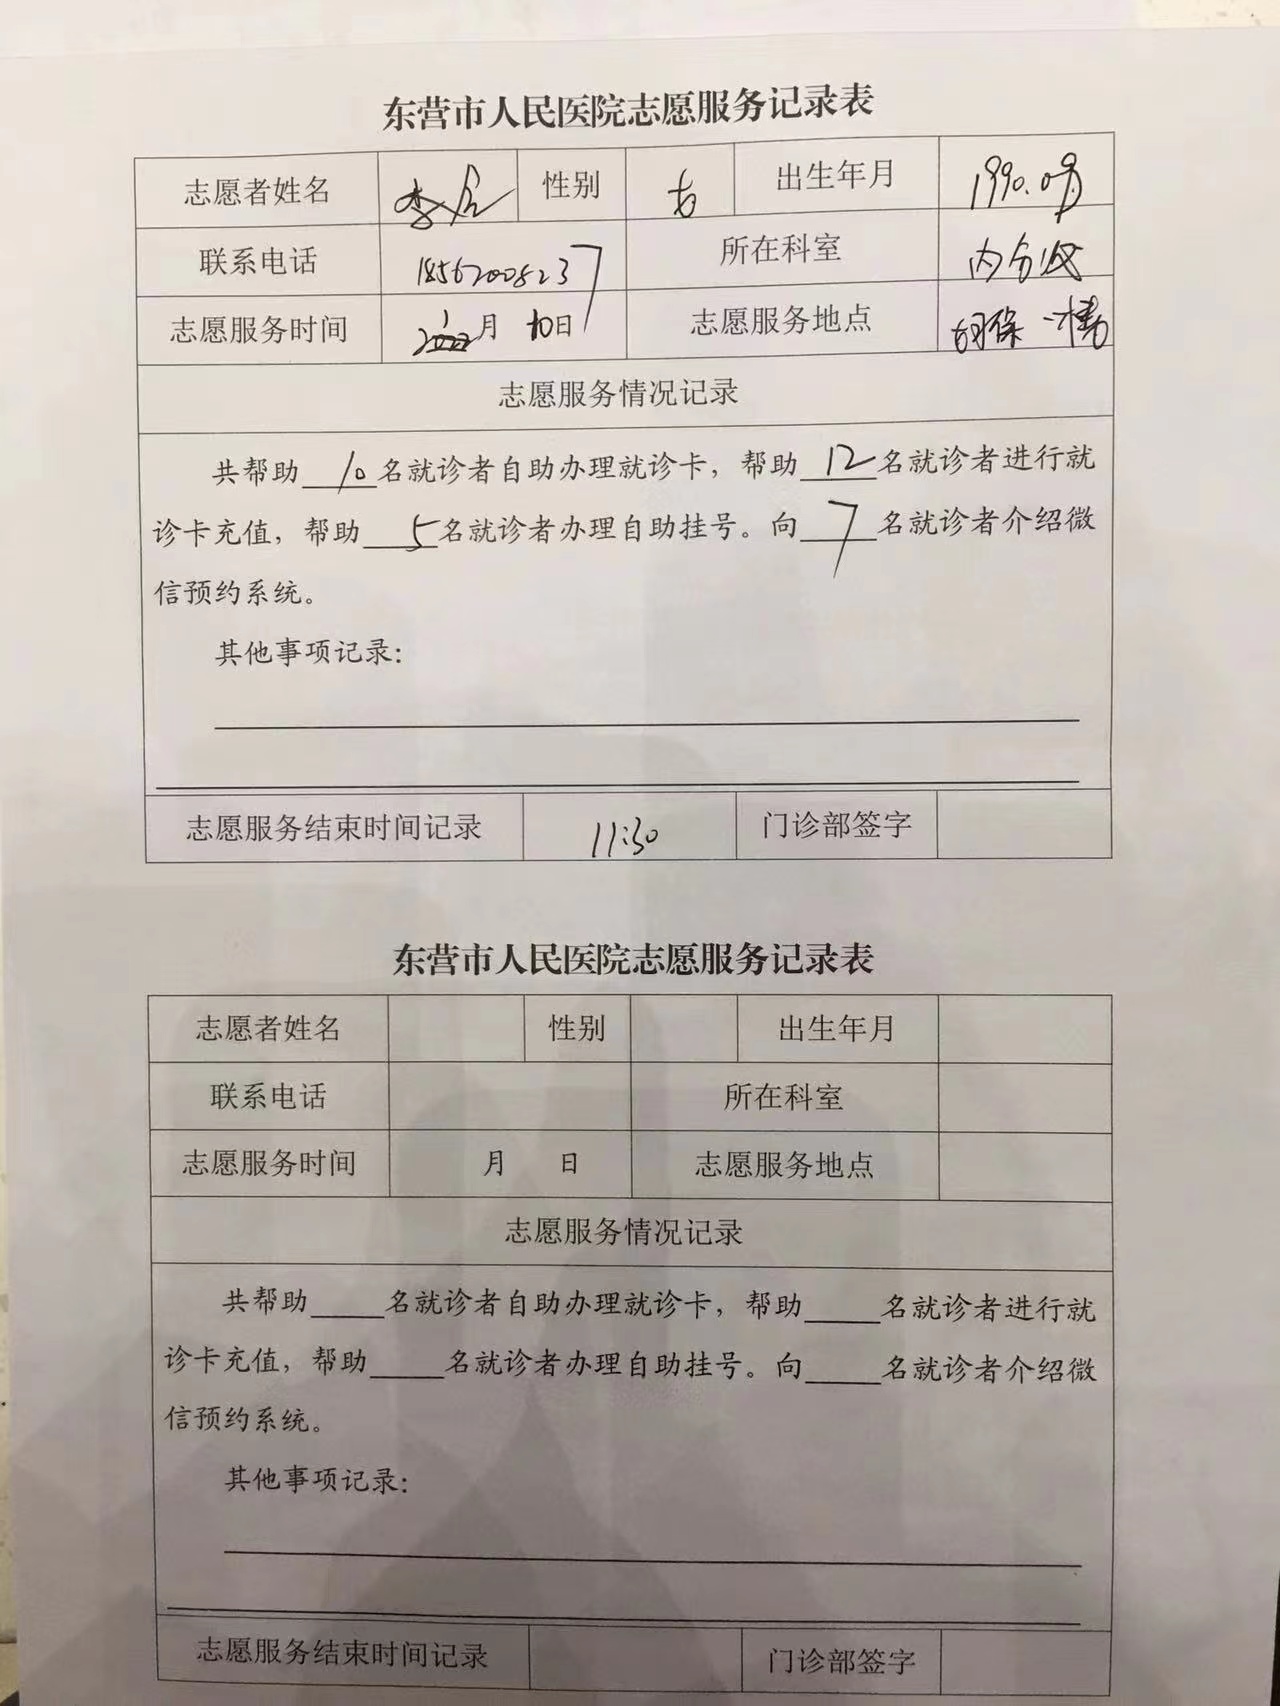 东营市人民医院志愿服务记录表
志愿者姓名 李 性别 女 出生年月 1990.09月
联系电话 18562008237 所在科室 内分泌
志愿服务时间 1月 10日 志愿服务地点 一楼
志愿服务情况记录
共帮助10名就诊者自助办理就诊卡，帮助12名就诊者进行就
诊卡充值，帮助5名就诊者办理自助挂号。向7名就诊者介绍微
信预约系统。
其他事项记录：
志愿服务结束时间记录 11:30 门诊部签字
东营市人民医院志愿服务记录表
志愿者姓名 性别 出生年月
联系电话 所在科室
志愿服务时间 月 日 志愿服务地点
志愿服务情况记录
共帮助_____名就诊者自助办理就诊卡，帮助_____名就诊者进行就
诊卡充值，帮助_____名就诊者办理自助挂号。向_____名就诊者介绍微
信预约系统。
其他事项记录：
志愿服务结束时间记录 门诊部签字